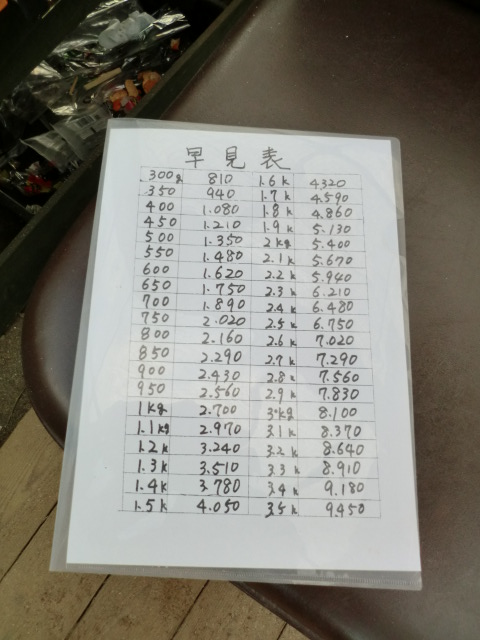 早見表
300g 810 1.6k 4320
350 940 1.7k 4.590
400 1.080 1.8k 4.860
450 1.210 1.9k 5.130
500 1.350 2kg 5.400
550 1.480 2.1k 5.670
600 1.620 2.2k 5.940
650 1.750 2.3k 6.210
700 1.890 2.4k 6.480
750 2.020 2.5k 6.750
800 2.160 2.6k 7.020
850 2.290 2.7k 7.290
900 2.430 2.8k 7.560
950 2.560 2.9k 7.830
1kg 2.700 3kg 8.100
1.1kg 2.970 3.1k 8.370
1.2k 3.240 3.2k 8.640
1.3k 3.510 3.3k 8.910
1.4k 3.780 3.4k 9.180
1.5k 4.050 3.5k 9.450